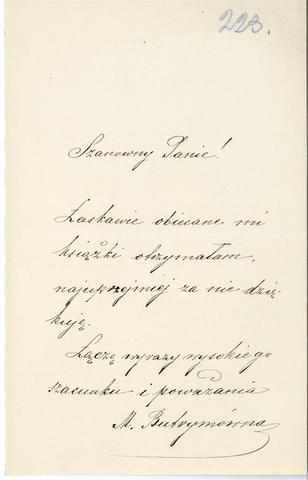 223.
Szanowny Panie!
Łaskawie obiecane mi
książki otrzymałam,
najuprzejmiej za nie dzię-
kuję.
Łączę wyrazy wysokiego
szacunku i poważania
M. Butrymówna